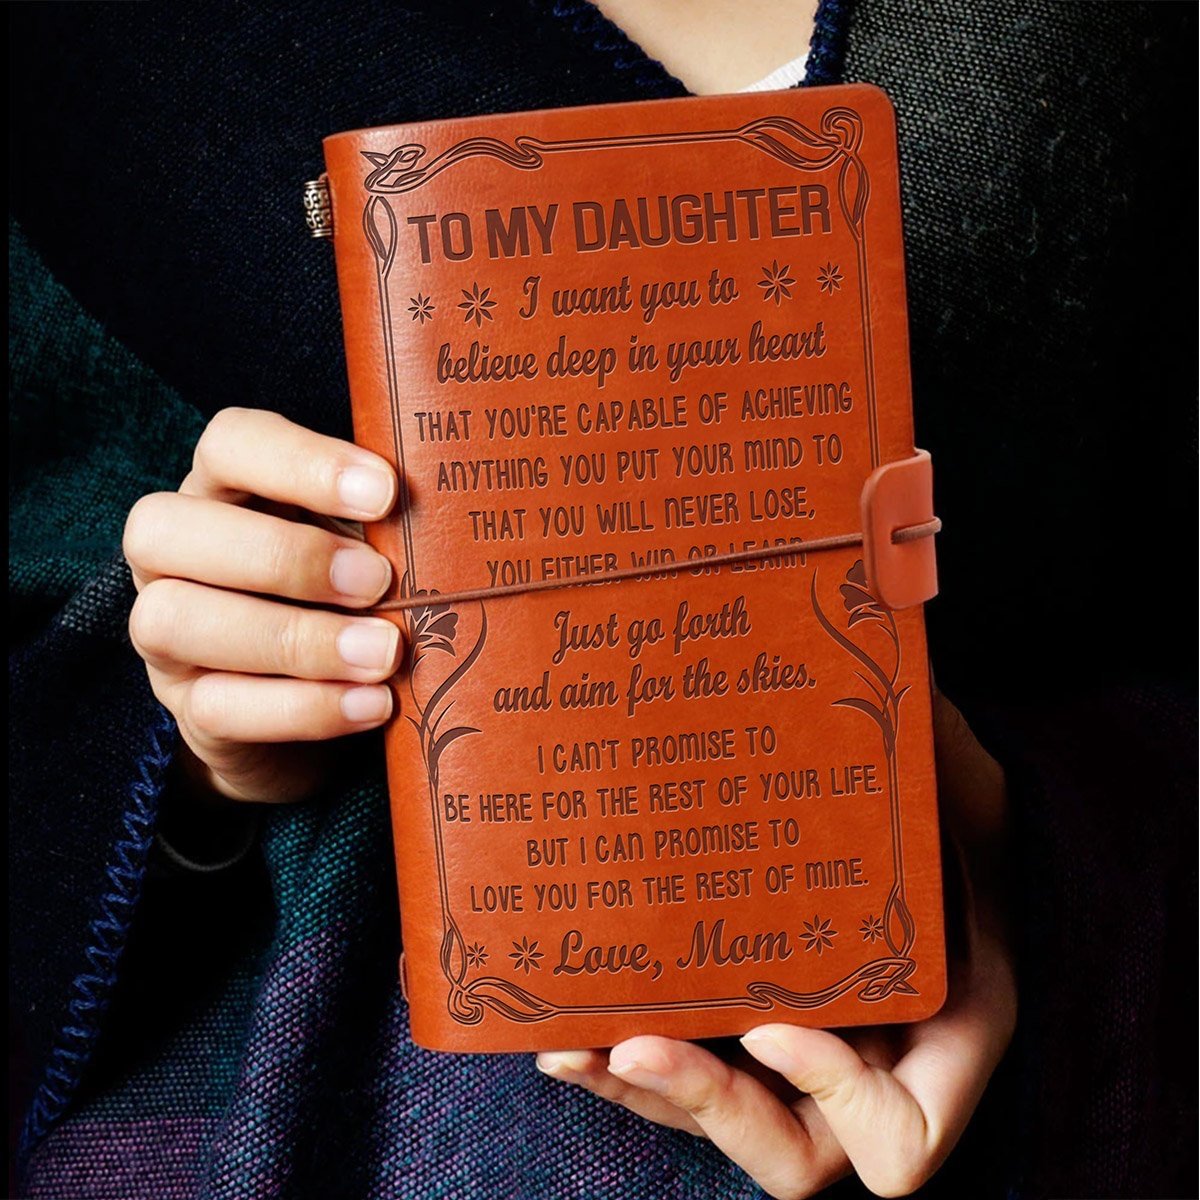 TO MY DAUGHTER
I want you to
believe deep in your heart
THAT YOU'RE CAPABLE OF ACHIEVING
ANYTHING YOU PUT YOUR MIND TO
THAT YOU WILL NEVER LOSE,
YOU EITHER WIN OR LEARN
Just go forth
and aim for the skies.
I CAN'T PROMISE TO
BE HERE FOR THE REST OF YOUR LIFE.
BUT I CAN PROMISE TO
LOVE YOU FOR THE REST OF MINE.
Love, Mom